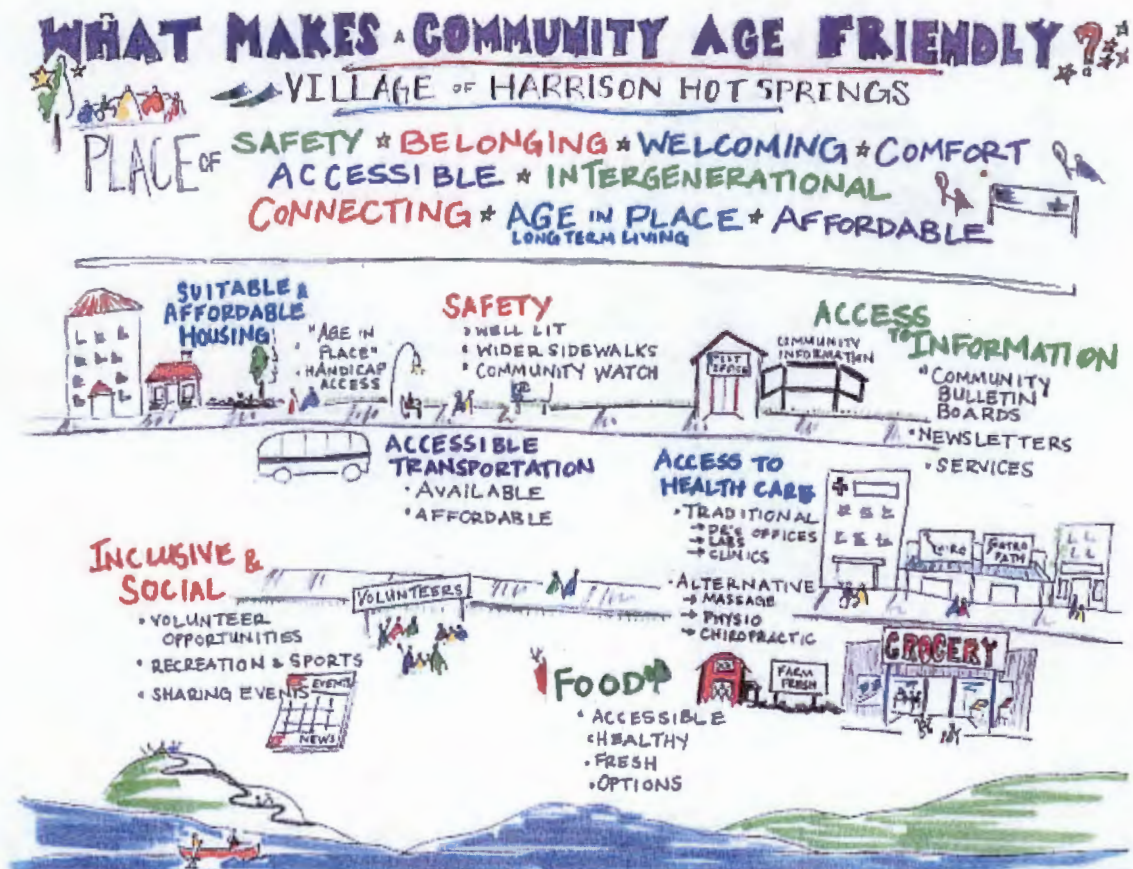 WHAT MAKES A COMMUNITY AGE FRIENDLY?
VILLAGE OF HARRISON HOT SPRINGS
PLACE OF
SAFETY * BELONGING * WELCOMING * COMFORT
ACCESSIBLE * INTERGENERATIONAL
CONNECTING * AGE IN PLACE * AFFORDABLE
LONG TERM LIVING
SUITABLE &
AFFORDABLE
HOUSING
• "AGE IN
PLACE"
• HANDICAP
ACCESS
SAFETY
• WELL LIT
• WIDER SIDEWALKS
• COMMUNITY WATCH
POST
OFFICE
COMMUNITY
INFORMATION
ACCESS
TO INFORMATION
• COMMUNITY
BULLETIN
BOARDS
• NEWSLETTERS
• SERVICES
ACCESSIBLE
TRANSPORTATION
• AVAILABLE
• AFFORDABLE
ACCESS TO
HEALTH CARE
• TRADITIONAL
→ DR'S OFFICES
→ LABS
→ CLINICS
• ALTERNATIVE
→ MASSAGE
→ PHYSIO
→ CHIROPRACTIC
PATH
INCLUSIVE &
SOCIAL
• VOLUNTEER
OPPORTUNITIES
• RECREATION & SPORTS
• SHARING EVENTS
EVENTS
NEWS
VOLUNTEERS
FOOD
• ACCESSIBLE
• HEALTHY
• FRESH
• OPTIONS
FARM
FRESH
GROCERY